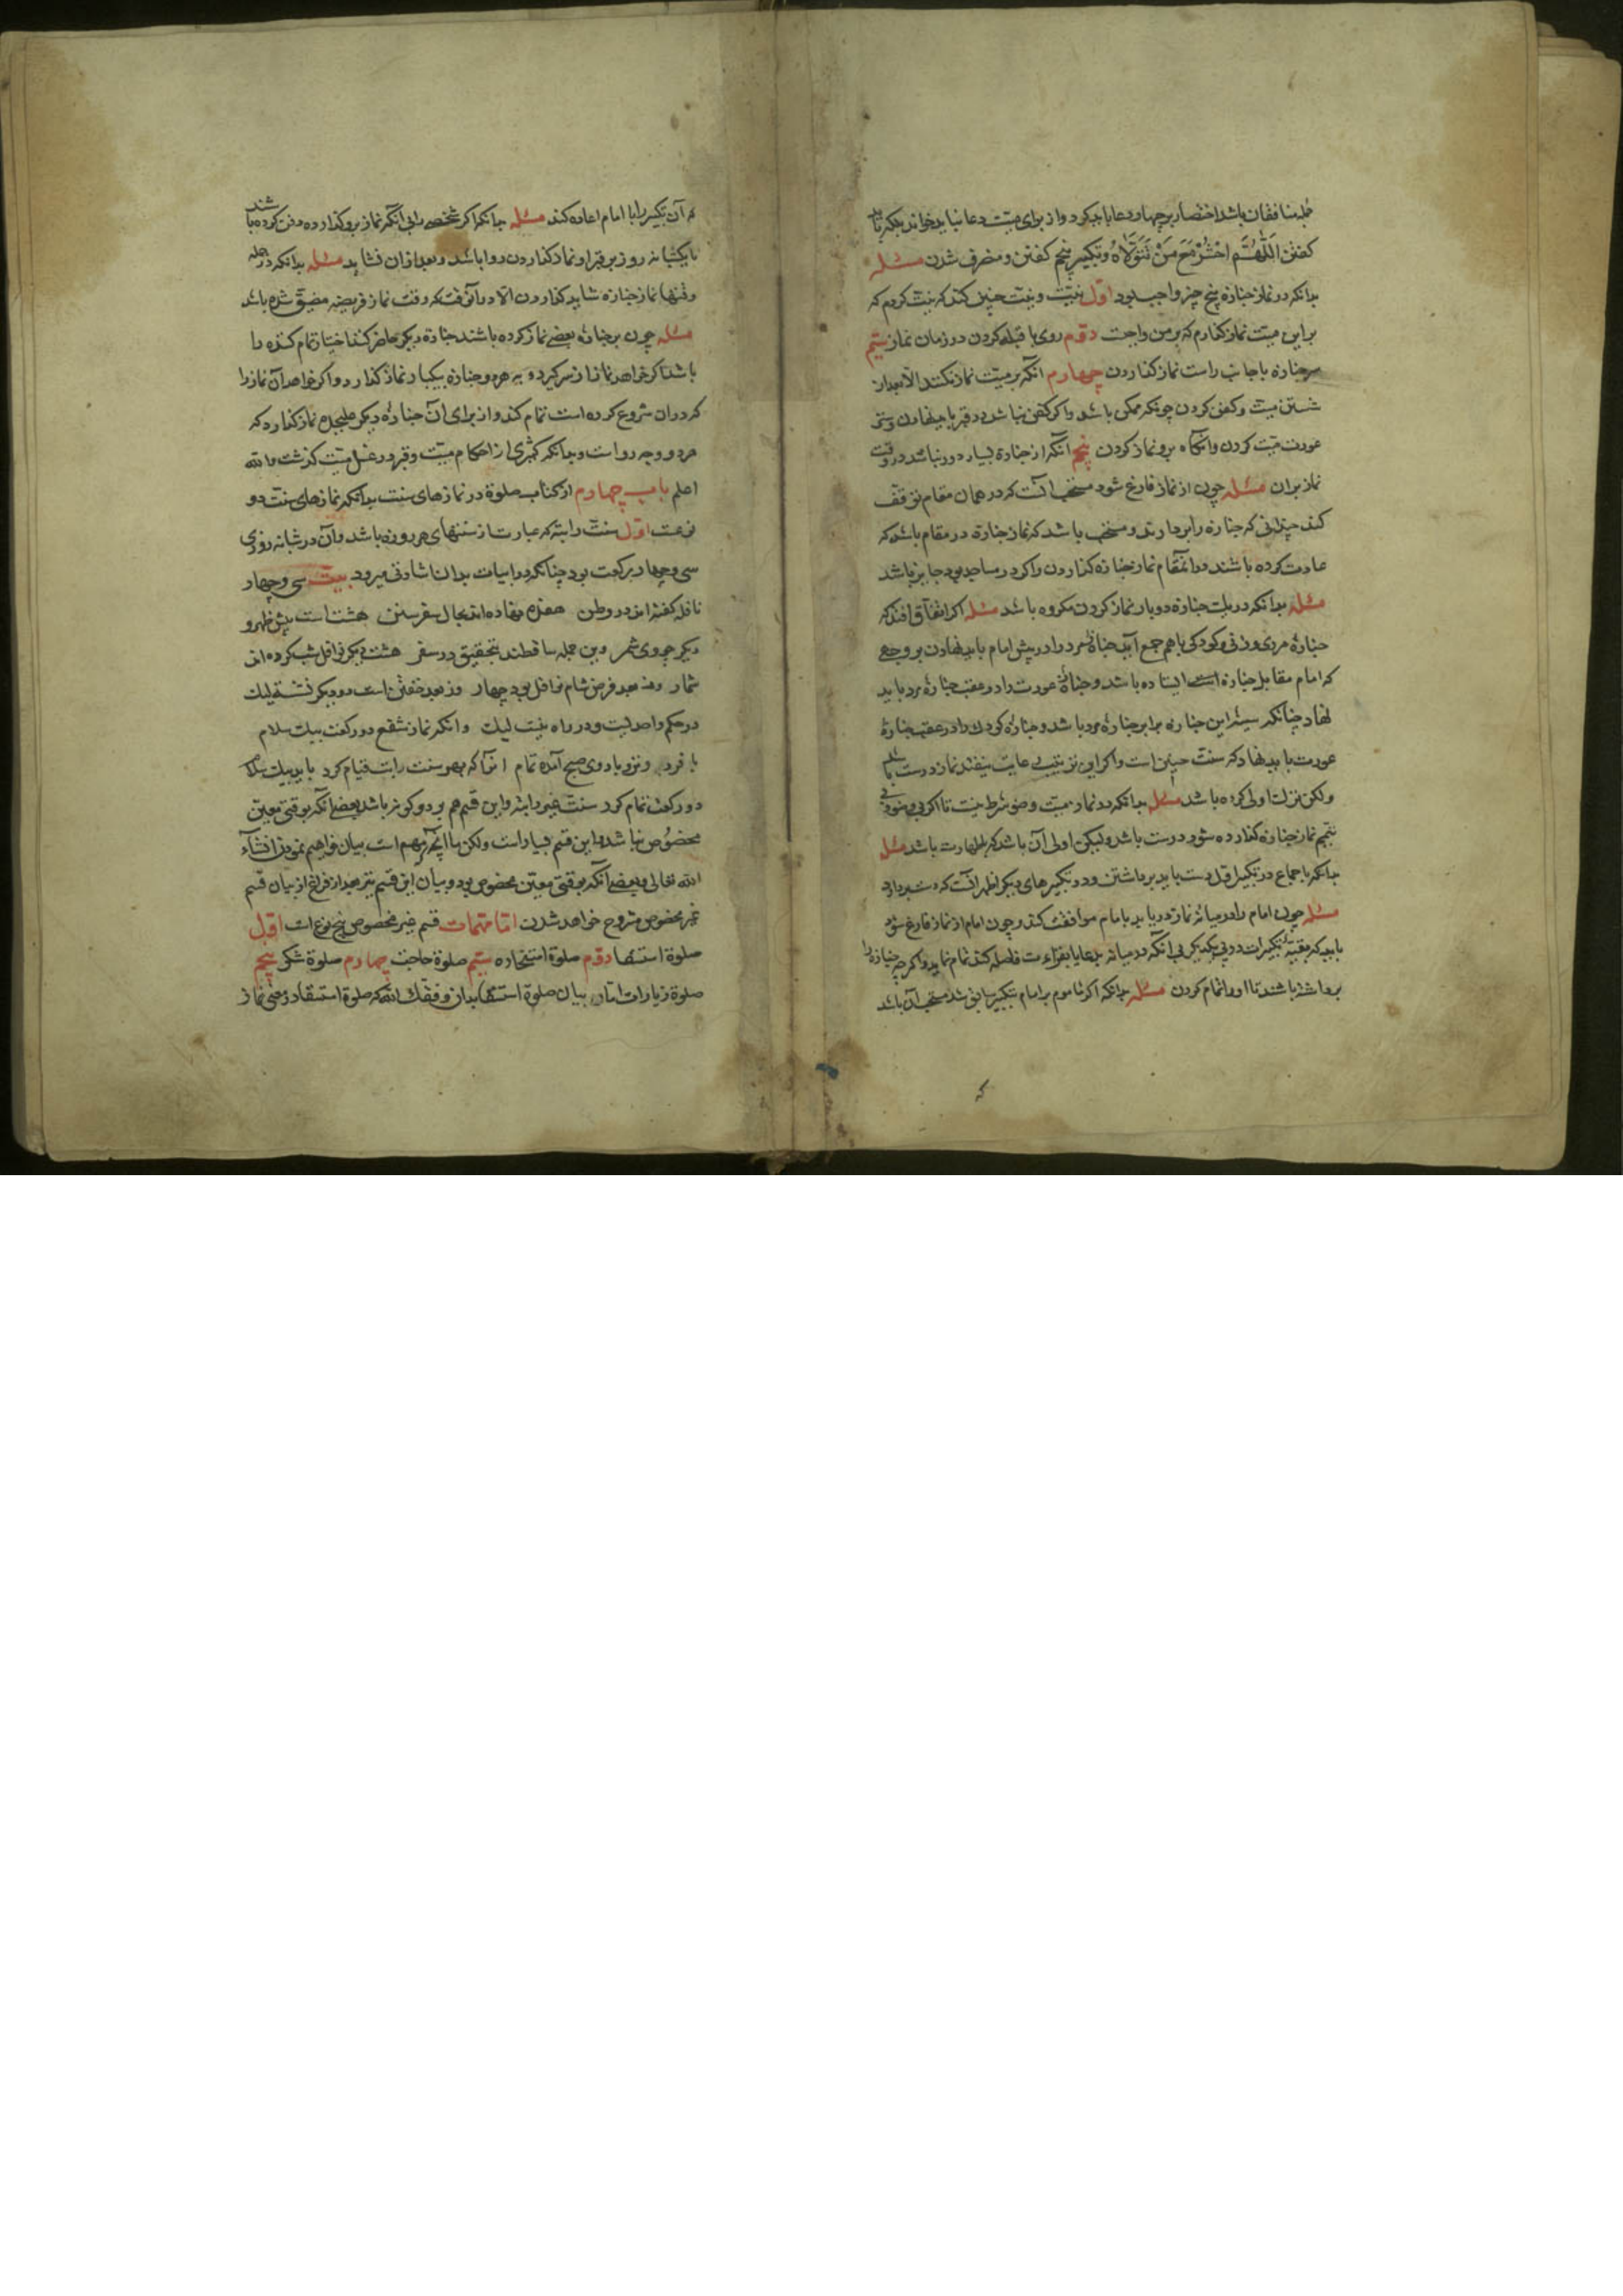 جمله منافقان باشد اختصار بر چهار دعا باید کرد و از برای میت دعا نباید خواند بلکه باید
گفتن اللّٰهُمَّ احْشُرْهُ مَعَ مَنْ تَتَوَلَّاهُ و تکبیر پنجم گفتن و منصرف شدن مسئله
بدانکه در نماز جنازه پنج چیز واجب بود اوّل نیّت و نیّت چنین کند که نیّت کردم که
بر این میّت نماز گذارم که بر من واجبست دوّم روی با قبله کردن در زمان نماز سیّم
سر جنازه با جانب راست نماز گذاردن چهارم آنکه بر میّت نماز نکنند الّا بعد از
شستن میّت و کفن کردن چونکه ممکن باشد و اگر کفن نباشد در قبر باید نهادن و ستر
عورت میّت کردن و آنگاه برو نماز کردن پنجم آنکه از جنازه بسیار دور نباشد در وقت
نماز بران مسئله چون از نماز فارغ شود مستحب آنست که در همان مقام توقّف
کند چندانی که جنازه را بردارند و مستحب باشد که نماز جنازه در مقام باشد که
عادت کرده باشند و در آنمقام نماز جنازه گذاردن و اگر در مساجد بود جایز باشد
مسئله بدانکه در یک جنازه دو بار نماز کردن مکروه باشد مسئله اگر اتفاق افتد که
جنازهٔ مردی و زنی و کودکی باهم جمع آید جنازهٔ مرد را در پیش امام باید نهادن بر وجهی
که امام مقابل جنازه ایستاده باشد و جنازهٔ عورت را در عقب جنازهٔ مرد باید
نهاد چنانکه سینهٔ این جنازه برابر جنازهٔ مرد باشد و جنازهٔ کودک را در عقب جنازهٔ
عورت باید نهاد که سنّت چنین است و اگر این ترتیب رعایت نیفتد نماز درست باشد
ولکن ترک اولی کرده باشد مسئله بدانکه در نماز میّت وضو شرط نیست تا اگر بی وضو و بی
تیمّم نماز جنازه گذارده شود درست باشد ولیکن اولی آن باشد که با طهارت باشد مسئله
بدانکه باجماع در تکبیر اوّل دست باید برداشتن و در تکبیرهای دیگر اظهر آنست که دست بردارد
مسئله چون امام را در میانهٔ نماز دریابد با امام موافقت کند و چون امام از نماز فارغ شود
باید که بقیّهٔ تکبیرات در پی یکدیگر بی آنکه در میانه بدعا یا بقراءت فاصله کند تمام نماید و اگر چه جنازه را
برداشته باشند تا او را تمام کردن مسئله بدانکه اگر ماموم بر امام بتکبیر سابق شد مستحب آن باشد
که
که آن تکبیر را با امام اعاده کند مسئله بدانکه اگر شخصی را بی آنکه نماز برو گذارده دفن کرده باشند
تا یکشبانه روز بر قبر او نماز گذاردن روا باشد و بعد از ان نشاید مسئله بدانکه در جمله
وقتها نماز جنازه شاید گذاردن الّا در آنوقت که وقت نماز فریضه مضیّق شده باشد
مسئله چون بر جنازه بعضی نماز کرده باشند جنازه دیگر حاضر کنند اختیار تمام کننده را
باشد اگر خواهد نماز از سر گیرد و بر هر دو جنازه یکبار نماز گذارد و اگر خواهد آن نماز را
که در ان شروع کرده است تمام کند و از برای آن جنازهٔ دیگر علیحده نماز گذارد که
هر دو وجه رواست و بدانکه کمتری از احکام میّت و قبر در غسل میّت گذشت والله
اعلم باب چهارم از کتاب صلوة در نمازهای سنّت بدانکه نمازهای سنّت دو
نوعست اوّل سنّت راتبه که عبارت از سنتهای هر روزه باشد و آن در شبانه روزی
سی و چهار رکعت بود چنانکه در ابیات بدان اشارتی میرود بیت سی و چهار
نافله گفته اند در وطن هفده نهاده اند بحال سفر سنن هشت است پیش ظهر و
دیگر چو وی شمر وین جمله ساقطند بتحقیق در سفر هشت دیگر نوافل شب کرده اند
شمار وند بعد فرض شام نوافل بود چهار وز بعد خفتن است دو دیگر نشسته لیک
در حکم واحدست و در راه نیست لیک وانکه نماز شفع دو رکعت بیک سلام
با فرد وتر و با دوی صبح آمده تمام انرا که بهر سنت راتب قیام کرد باید بیک سلام
دو رکعت تمام کرد سنّت غیر راتبه و این قسم هم بر دو گونه باشد بعضی آنکه بوقتی معیّن
مخصوص نباشد و این قسم بسیار است ولکن ما آنچه مهم است بیان خواهیم نمودن انشآء
الله تعالی و بعضی آنکه بوقتی معیّن مخصوص بود و بیان این قسم نیز بعد از فراغ از بیان قسم
غیر مخصوص مشروح خواهد شدن امّا مهمات قسم غیر مخصوص پنج نوع است اوّل
صلوة استسقا دوّم صلوة استخاره سیّم صلوة حاجت چهارم صلوة شکر پنجم
صلوة زیارات امّا بیان صلوة استسقا بدان وفّقک الله که صلوة استسقا دو رکعتی نماز